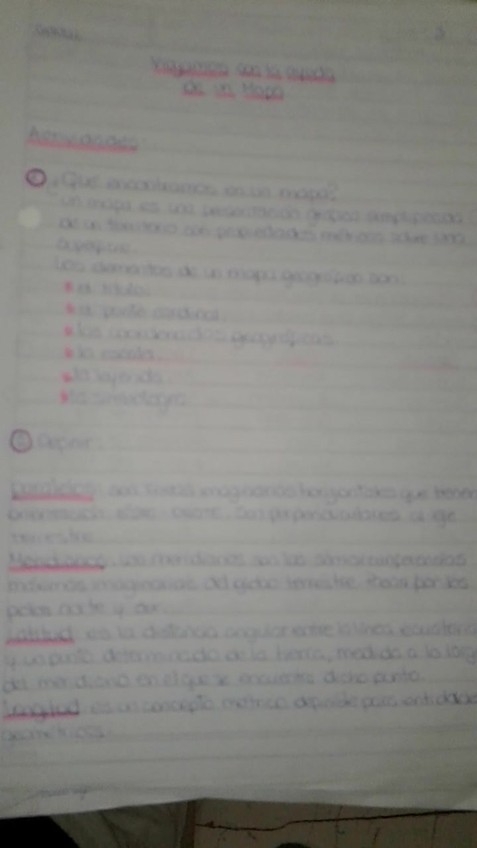 Viajamos con la ayuda
de un Mapa
Actividades:
① ¿Qué encontramos en un mapa?
un mapa es una presentación gráfica simplificada
de un territorio con propiedades métricas sobre una
superficie.
Los elementos de un mapa geográfico son:
el título.
el punto cardinal.
las coordenadas geográficas.
la escala.
la leyenda.
la simbología
② Definir:
Paralelos: son líneas imaginarias horizontales que tienen
orientación este oeste. Son perpendiculares al eje
terrestre.
Meridianos: los meridianos son las semicircunferencias
máximas imaginarias del globo terrestre. Pasan por los
polos norte y sur.
Latitud: es la distancia angular entre la línea ecuatorial
y un punto determinado de la tierra, medida a lo largo
del meridiano en el que se encuentra dicho punto.
Longitud: es un concepto métrico definible para entidades
geométricas.